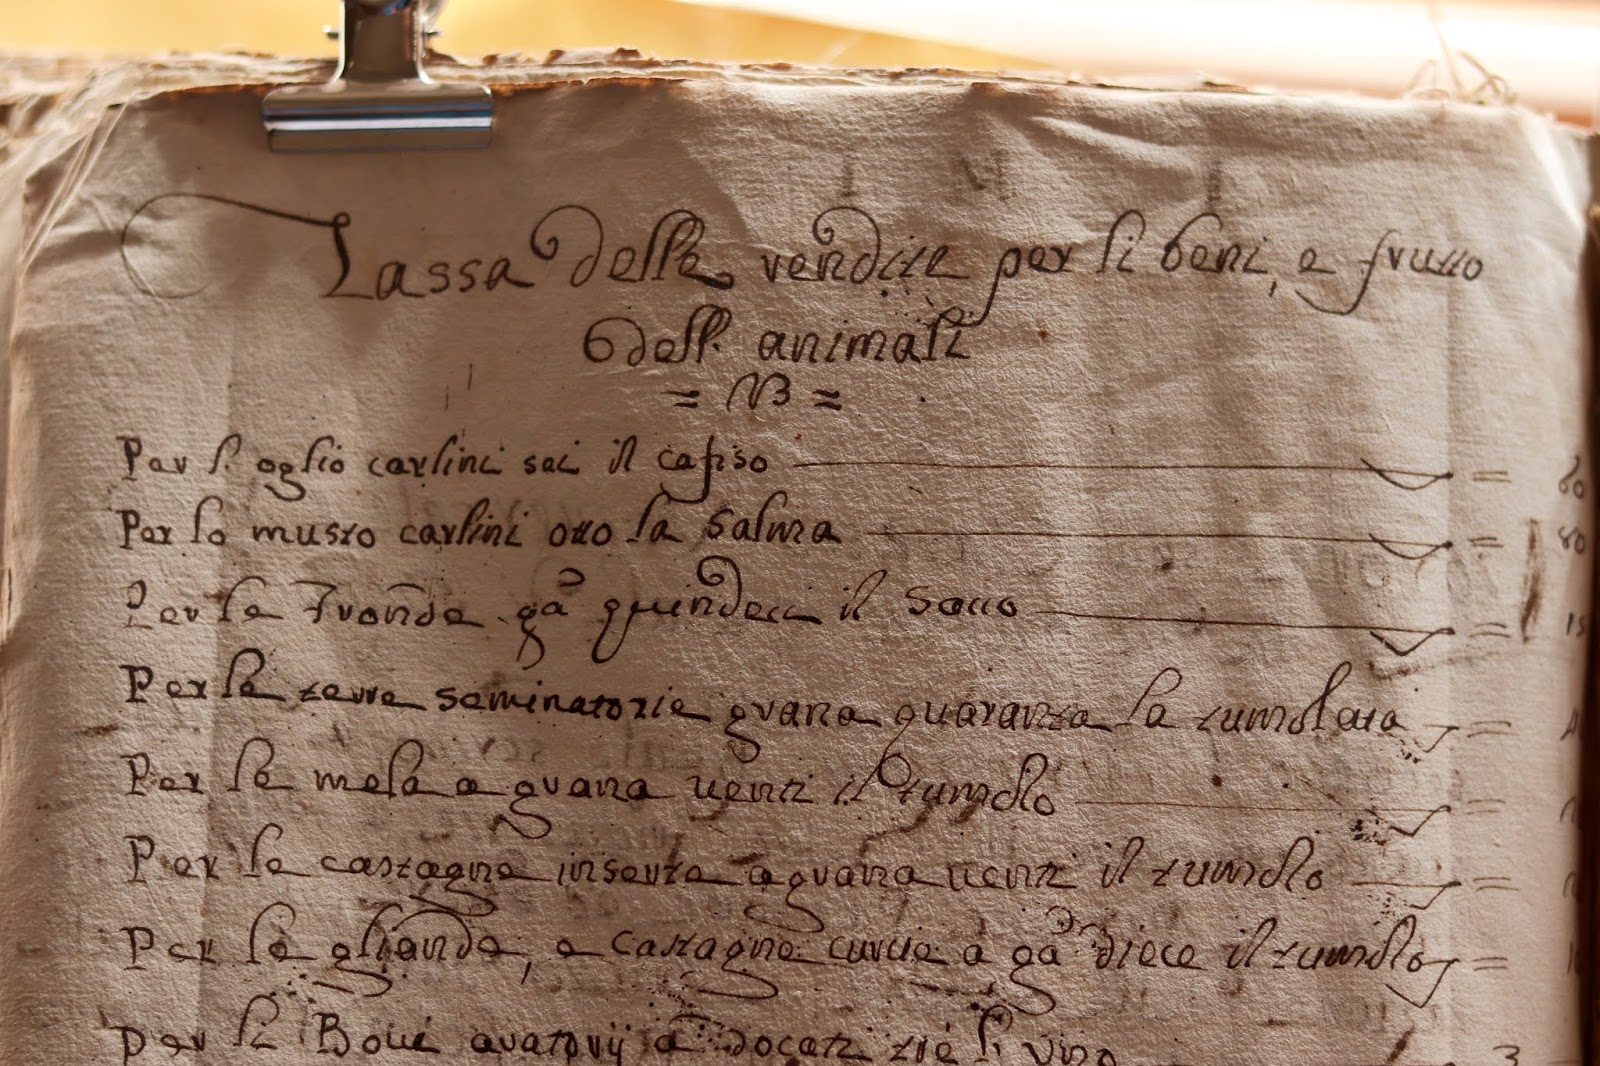 Tassa delle vendite per li beni, e frutto
dell: animali
= NB =
Per l'oglio carlini sei il cafiso = 60
Per lo musto carlini otto la salma = 80
Per le Fronde ga quindeci il sacco = 15
Per le terre seminatorie grana quaranta la tumolata =
Per le mela a grana venti il tumolo =
Per le castagne inserte a grana venti il tumolo =
Per le gliande, e castagne curcie a ga diece il tumolo = 10
Per li Boui aratorij a docati trè l'vno 3